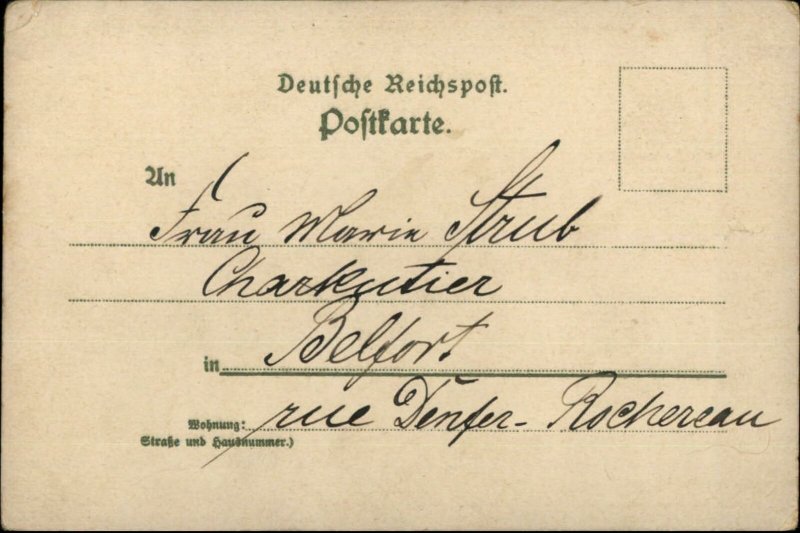 Deutsche Reichspost.
Postkarte.
An
Frau Marie Strub
Charkutier
in Belfort
Wohnung: rue Denfer-Rochereau
Straße und Hausnummer.)